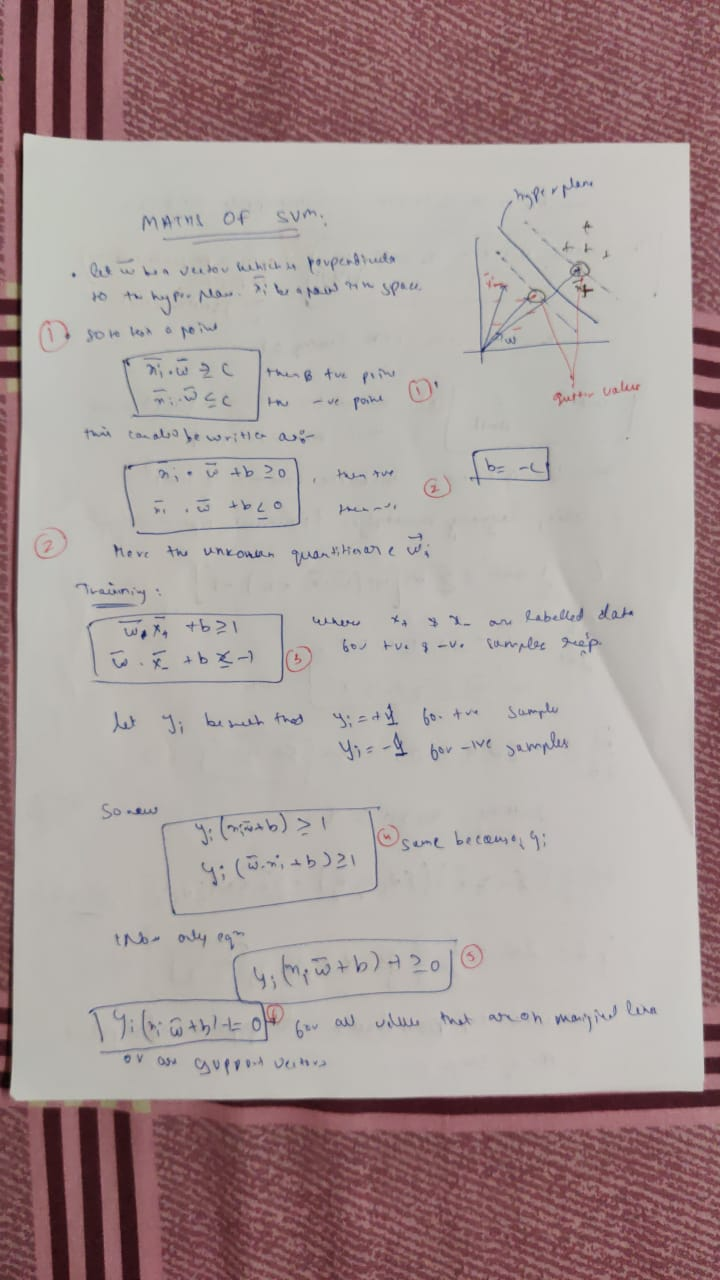 MATHS OF SVM:
hyper plane
• let w̄ be a vector which is perpendicular
to the hyper plane. x̄i be a point in the space
① . So to test a point
x̄i . w̄ ≥ C then +ve point
x̄i . w̄ ≤ C then -ve point ①'
gutter value
this can also be written as:-
x̄i . w̄ + b ≥ 0 , then +ve
x̄i . w̄ + b ≤ 0 then -ve ②
b = -c
② Here the unknown quantities are w̄i
Training:
w̄ . x̄+ + b ≥ 1
w̄ . x̄- + b ≤ -1 ③
where x+ & x- are labelled data
for +ve & -ve samples resp.
let yi be such that yi = +1 for +ve sample
yi = -1 for -ive samples
So now
yi (xi w̄ + b) ≥ 1
yi (w̄ . xi + b) ≥ 1 ④ same because of yi
only eqn
yi (xi w̄ + b) -1 ≥ 0 ⑤
yi (xi w̄ + b) -1 = 0 ⑥ for all value that are on marginal
or are support vectors